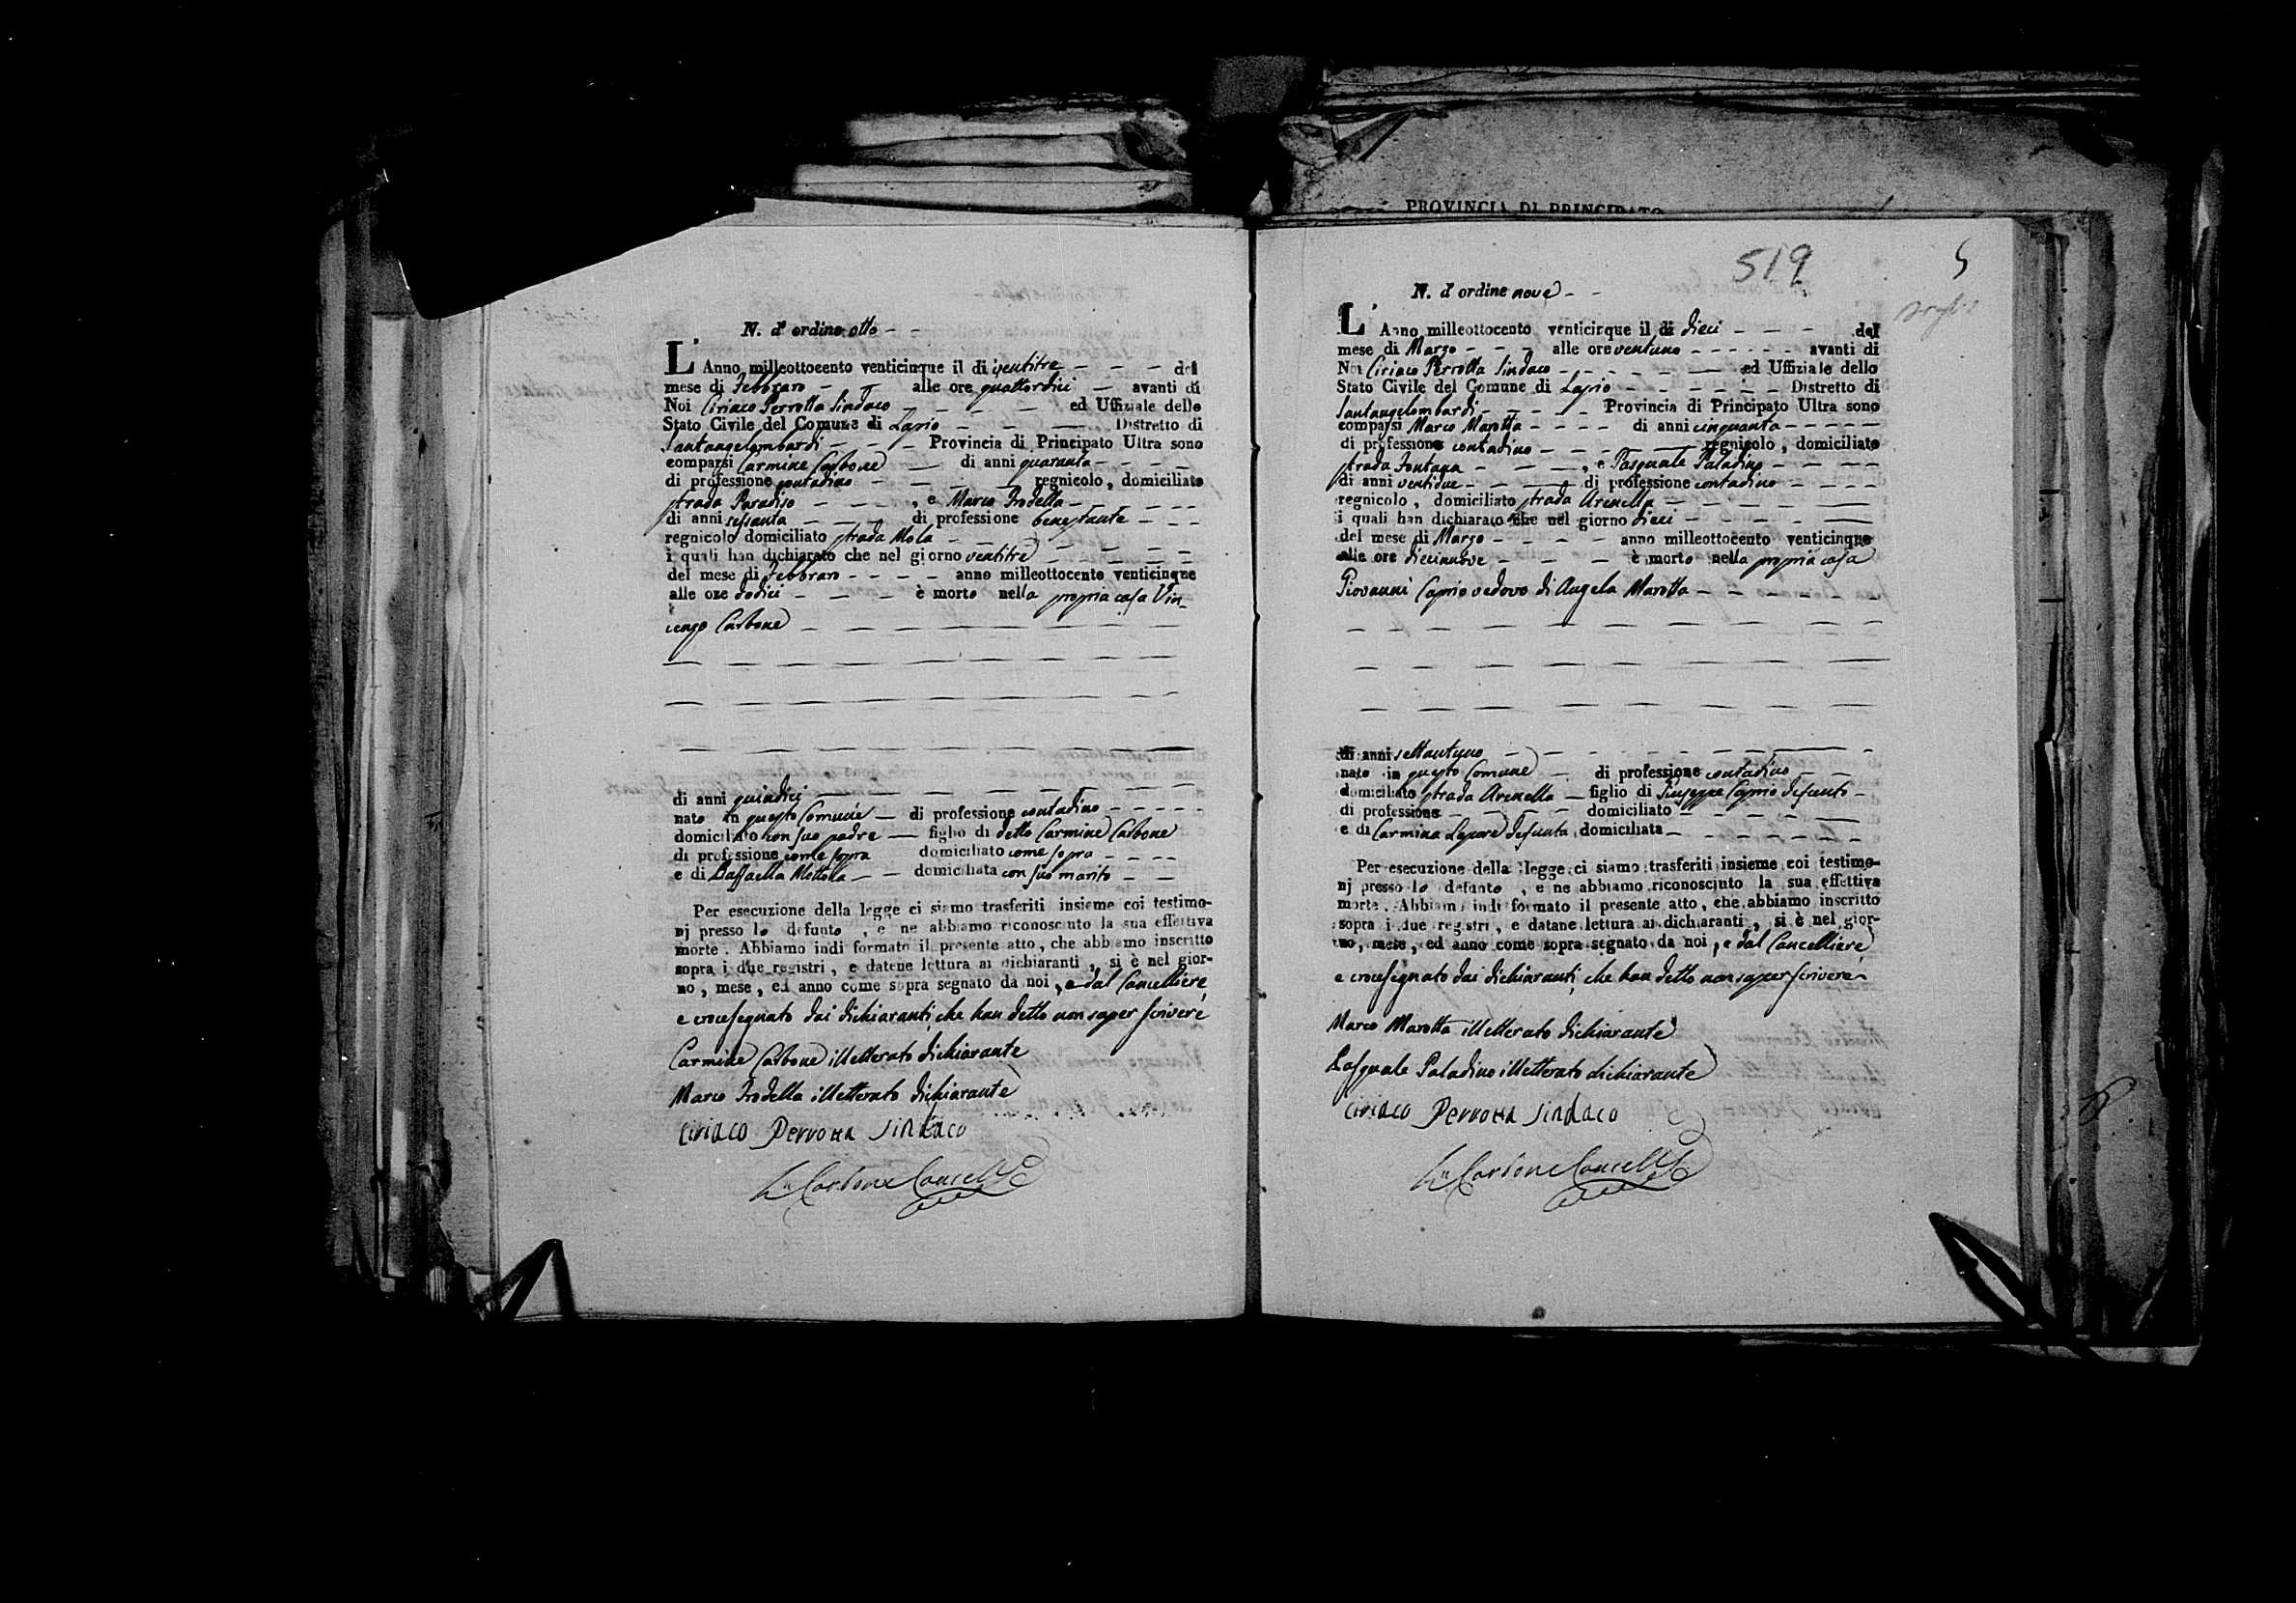 PROVINCIA DI PRINCIPATO
N. d'ordine otto
L'Anno milleottocento venticinque il di ventitre del
mese di Febbraro alle ore quattordici avanti di
Noi Ciriaco Perrotta Sindaco ed Uffiziale dello
Stato Civile del Comune di Lapio Distretto di
Santangelombardi Provincia di Principato Ultra sono
comparsi Carmine Carbone di anni quaranta
di professione contadino regnicolo, domiciliato
strada Paradiso, e Marco Trodella
di anni sessanta di professione benestante
regnicolo domiciliato strada Mola
i quali han dichiarato che nel giorno ventitre
del mese di Febbraro anno milleottocento venticinque
alle ore dodici è morto nella propria casa Vin-
cenzo Carbone
di anni quindici
nato in questo Comune di professione contadino
domiciliato con suo padre figlio di detto Carmine Carbone
di professione come sopra domiciliato come sopra
e di Raffaella Mottola domiciliata con suo marito
Per esecuzione della legge ci siamo trasferiti insieme coi testimo-
nj presso lo defunto, e ne abbiamo riconosciuto la sua effettiva
morte. Abbiamo indi formato il presente atto, che abbiamo inscritto
sopra i due registri, e datene lettura ai dichiaranti, si è nel gior-
no, mese, ed anno come sopra segnato da noi, e dal Cancelliere,
e crocesegnato dai dichiaranti, che han detto non saper scrivere
Carmine Carbone illetterato dichiarante
Marco Trodella illetterato dichiarante
Ciriaco Perrotta Sindaco
Carbone Cancell
519
5
N. d'ordine nove
L'Anno milleottocento venticinque il di dieci del
mese di Marzo alle ore ventuno avanti di
Noi Ciriaco Perrotta Sindaco ed Uffiziale dello
Stato Civile del Comune di Lapio Distretto di
Santangelombardi Provincia di Principato Ultra sono
comparsi Marco Marotta di anni cinquanta
di professione contadino regnicolo, domiciliato
strada Fontana, e Pasquale Paladino
di anni ventidue di professione contadino
regnicolo, domiciliato strada Arenella
i quali han dichiarato che nel giorno dieci
del mese di Marzo anno milleottocento venticinque
alle ore diecinnove è morto nella propria casa
Giovanni Caprio vedovo di Angela Marotta
di anni settantuno
nato in questo Comune di professione contadino
domiciliato strada Arenella figlio di Giuseppe Caprio defunto
di professione domiciliato
e di Carmina Lepore defunta domiciliata
Per esecuzione della legge ci siamo trasferiti insieme coi testimo-
nj presso lo defunto, e ne abbiamo riconosciuto la sua effettiva
morte. Abbiamo indi formato il presente atto, che abbiamo inscritto
sopra i due registri, e datane lettura ai dichiaranti, si è nel gior-
no, mese, ed anno come sopra segnato da noi, e dal Cancelliere,
e crocesegnato dai dichiaranti, che han detto non saper scrivere
Marco Marotta illetterato dichiarante
Pasquale Paladino illetterato dichiarante
Ciriaco Perrotta Sindaco
Carbone Cancell